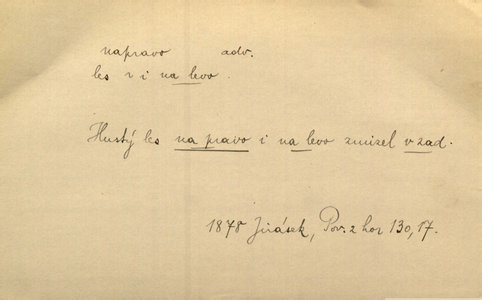 napravo adv.
les n i na levo.
Hustý les na pravo i na levo zmizel v zad.
1878 Jirásek, Pov. z hor 130,17.